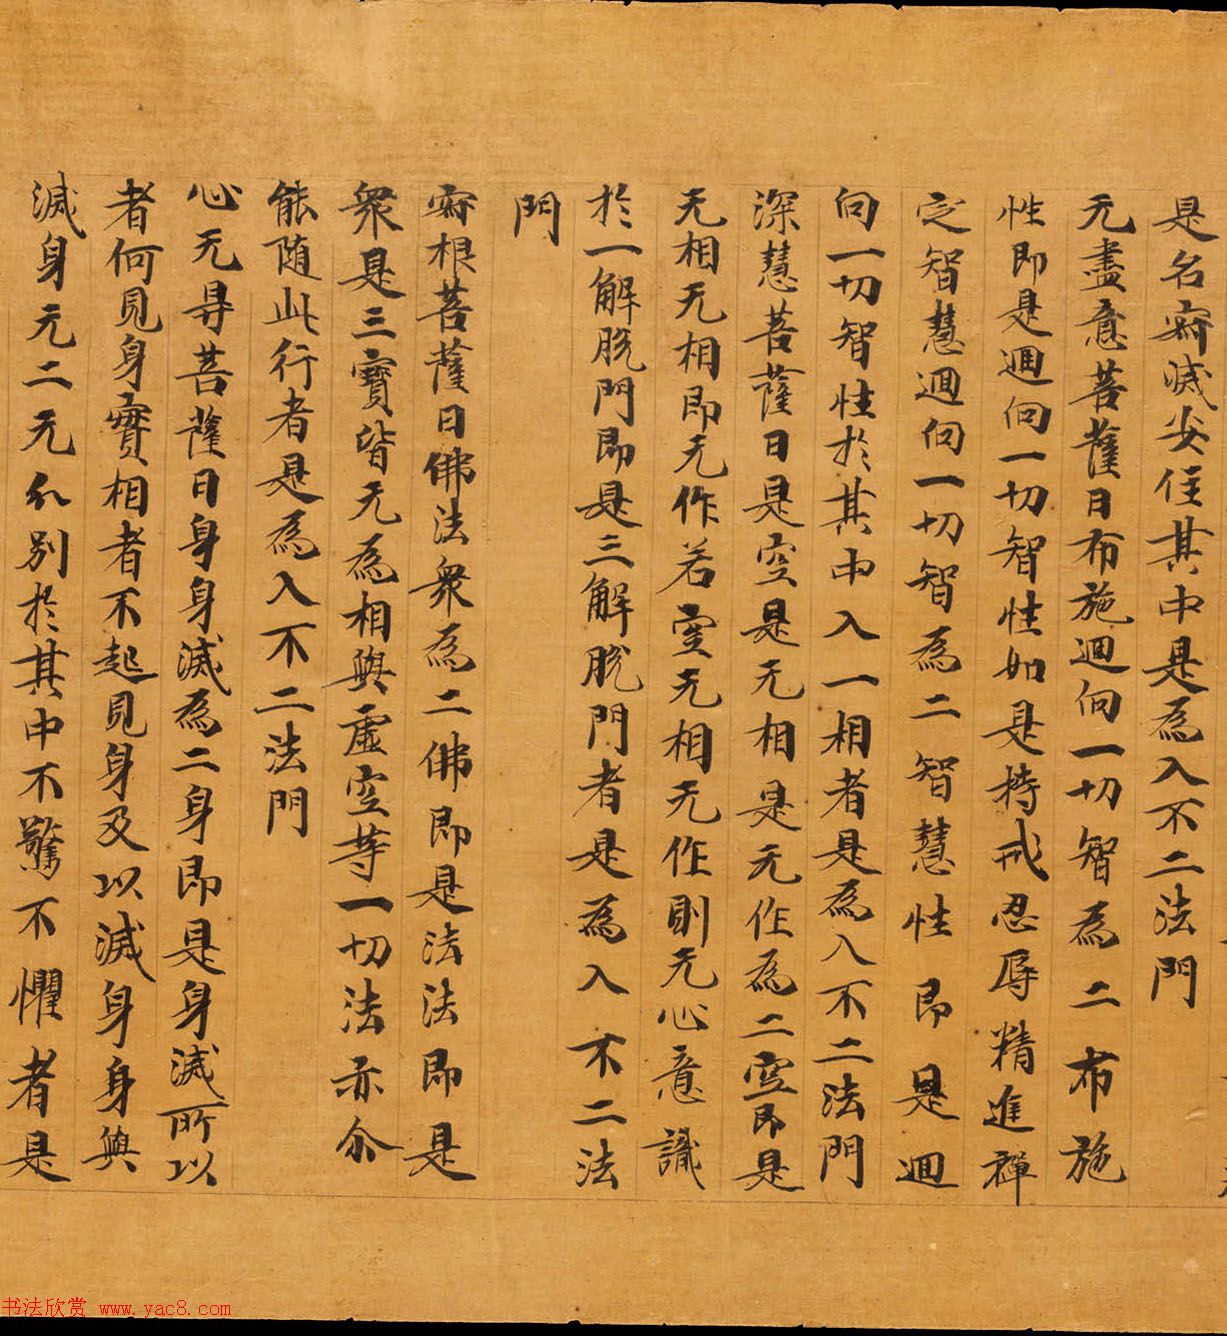 是名寂滅安住其中是為入不二法門
无盡意菩薩曰布施迴向一切智為二布施
性即是迴向一切智性如是持戒忍辱精進禪
定智慧迴向一切智為二智慧性即是迴
向一切智性於其中入一相者是為入不二法門
深慧菩薩曰是空是无相是无作為二空即是
无相无相即无作若空无相无作則无心意識
於一解脫門即是三解脫門者是為入不二法
門
寂根菩薩曰佛法衆為二佛即是法法即是
衆是三寶皆无為相與虛空等一切法亦尒
能随此行者是為入不二法門
心无㝵菩薩曰身身滅為二身即是身滅所以
者何見身實相者不起見身及以滅身身與
滅身无二无分別於其中不驚不懼者是
书法欣赏 www.yac8.com